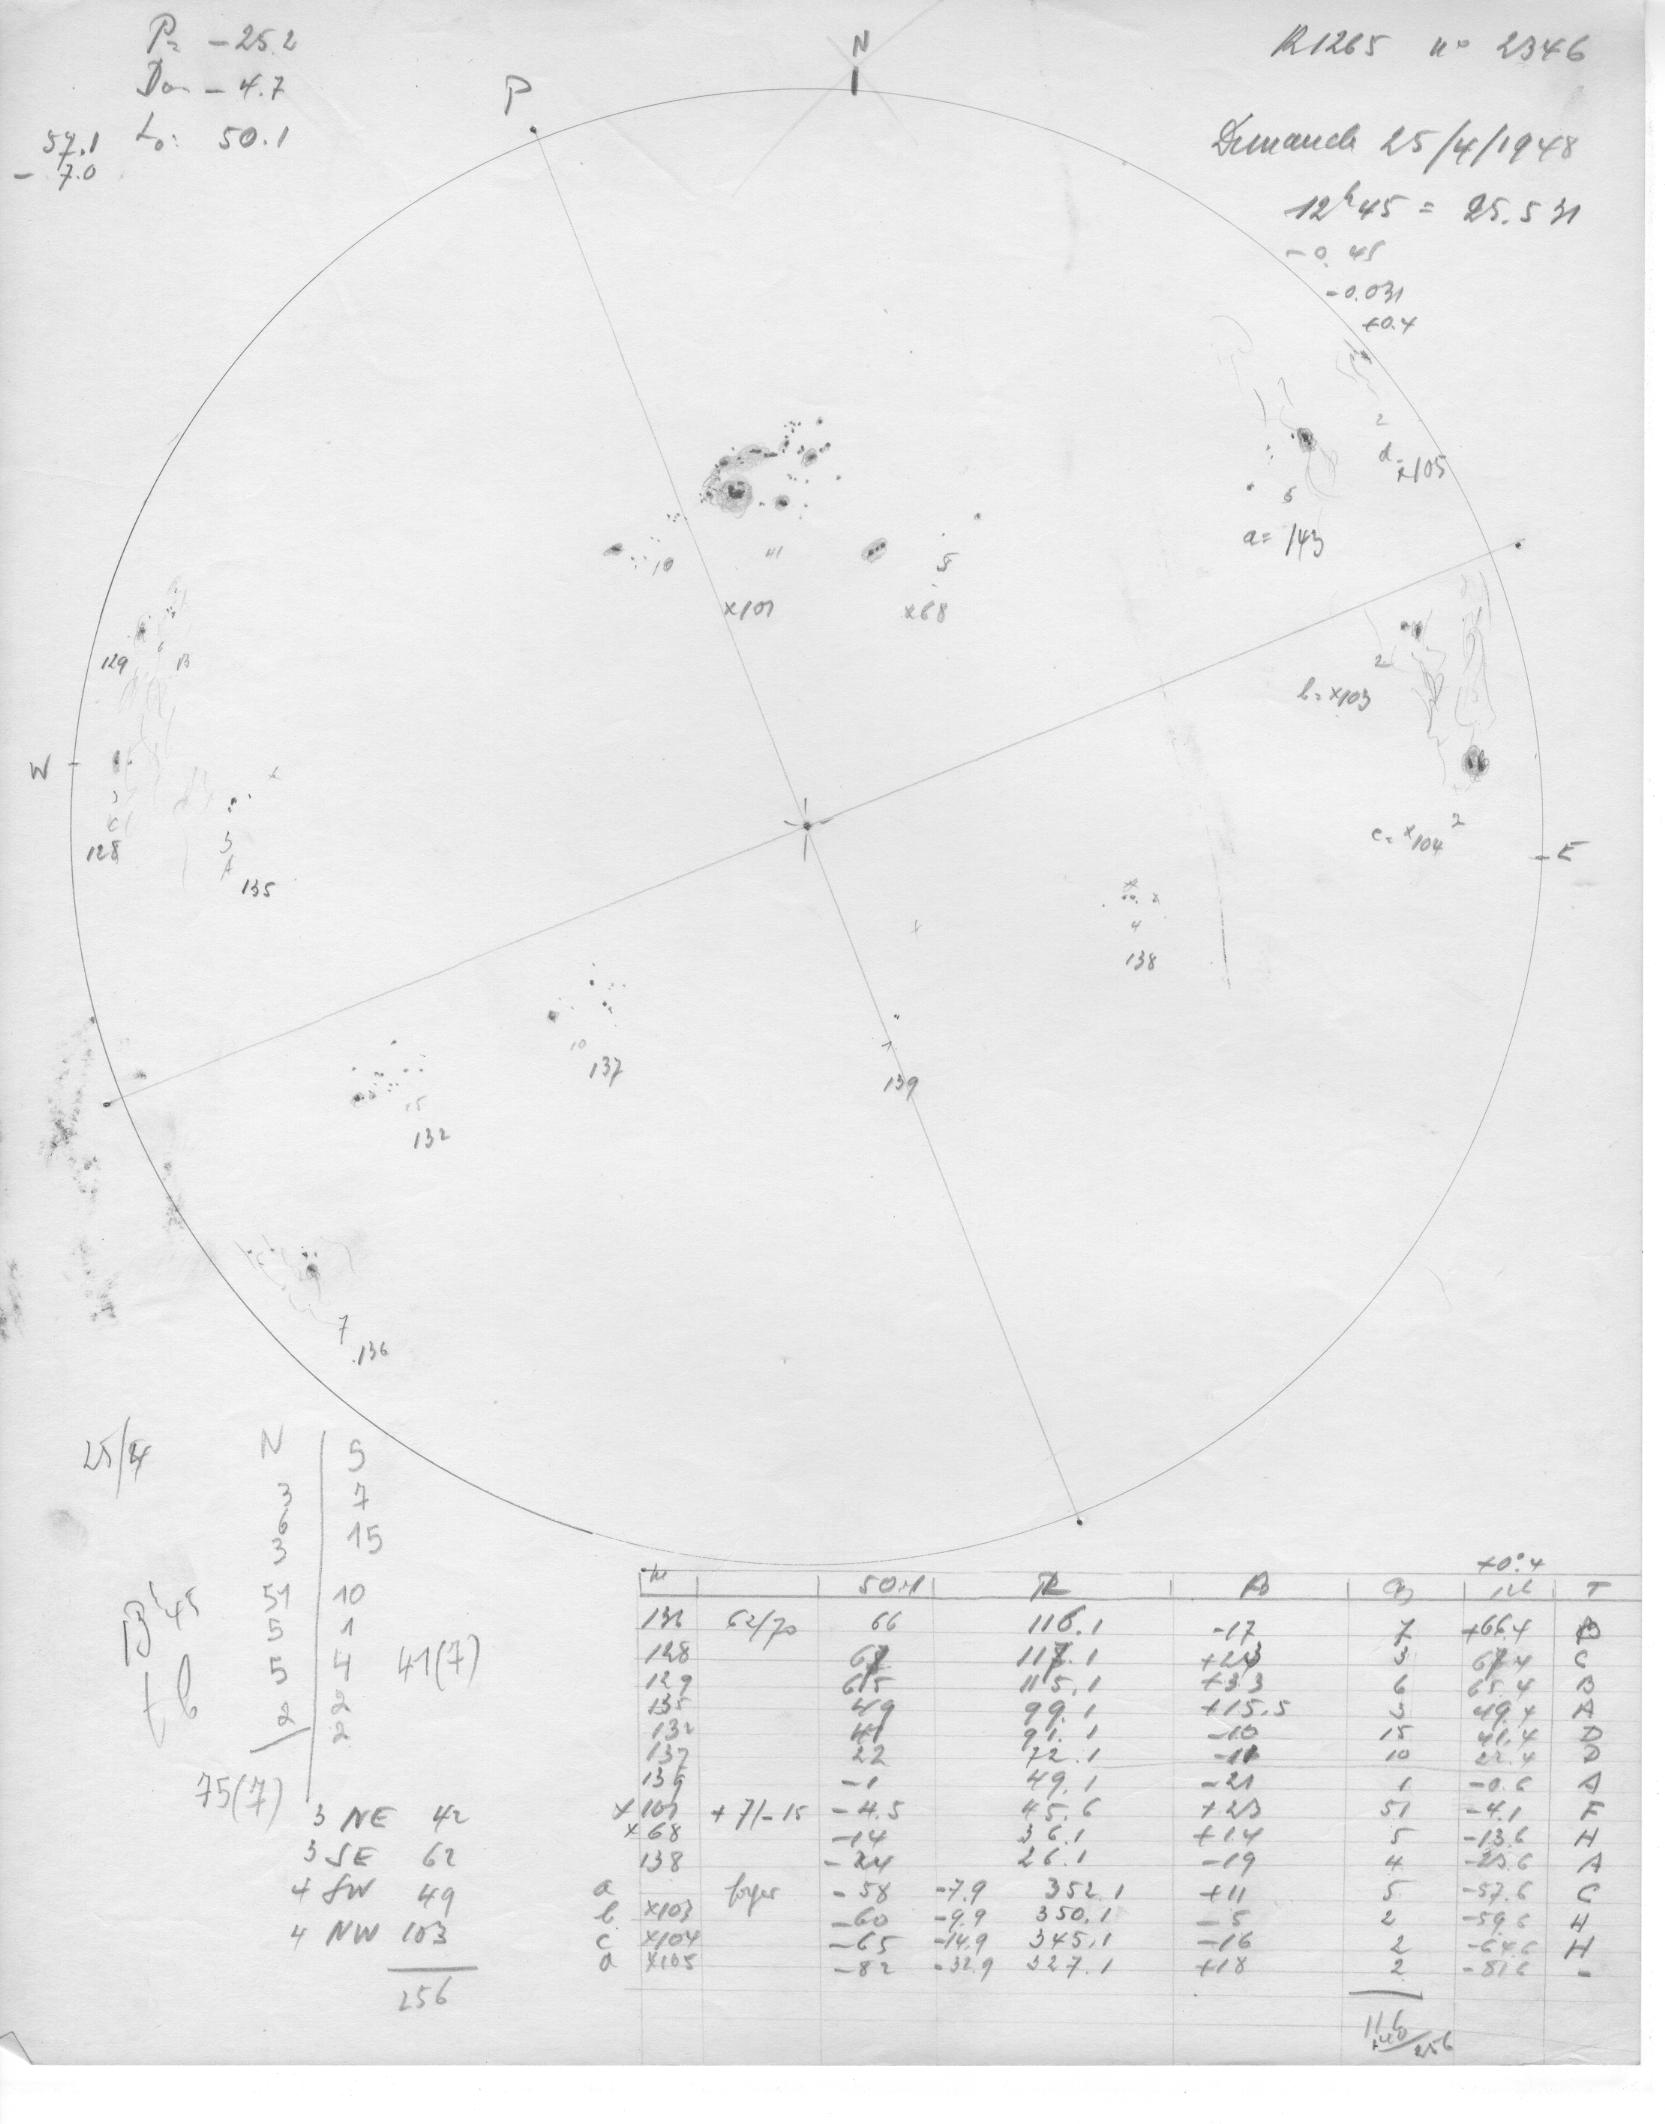 P= -25.2
Do= -4.7
57.1 Lo: 50.1
- 7.0
P
N
R1265 n° 2346
Dimanche 25/4/1948
12h45 = 25.531
-0.45
-0.031
+0.4
2
d=x105
6
a= 143
10
x101
5
x68
2
b= x103
129
B
W
128
3
A
135
c= x104 2
E
4
138
10
137
1
139
15
132
7
136
25/4
N S
3 7
6 15
3
51 10
5 1
5 4 41(7)
2 2
2
75(7)
3 NE 42
3 SE 62
4 SW 49
4 NW 103
256
+0°.4
50.1 R B T
136 62/70 66 116.1 -17 7 +66.4
128 67 117.1 3 67.4 C
129 65 115.1 +33 6 65.4 B
135 49 99.1 +15.5 3 49.4 A
132 41 91.1 -10 15 41.4 D
137 22 72.1 -11 10 22.4 D
139 -1 49.1 -21 1 -0.6 A
x101 +7/-15 -4.5 45.6 +23 51 -4.1 F
x68 -14 36.1 +14 5 -13.6 H
138 -24 26.1 -19 4 -23.6 A
a foyer -58 -7.9 352.1 +11 5 -57.6 C
b x103 -60 -9.9 350.1 -5 2 -59.6 H
c x104 -65 -14.9 345.1 -16 2 -64.6 H
d x105 -82 -32.9 327.1 +18 2 -81.6 -
116
+140/256